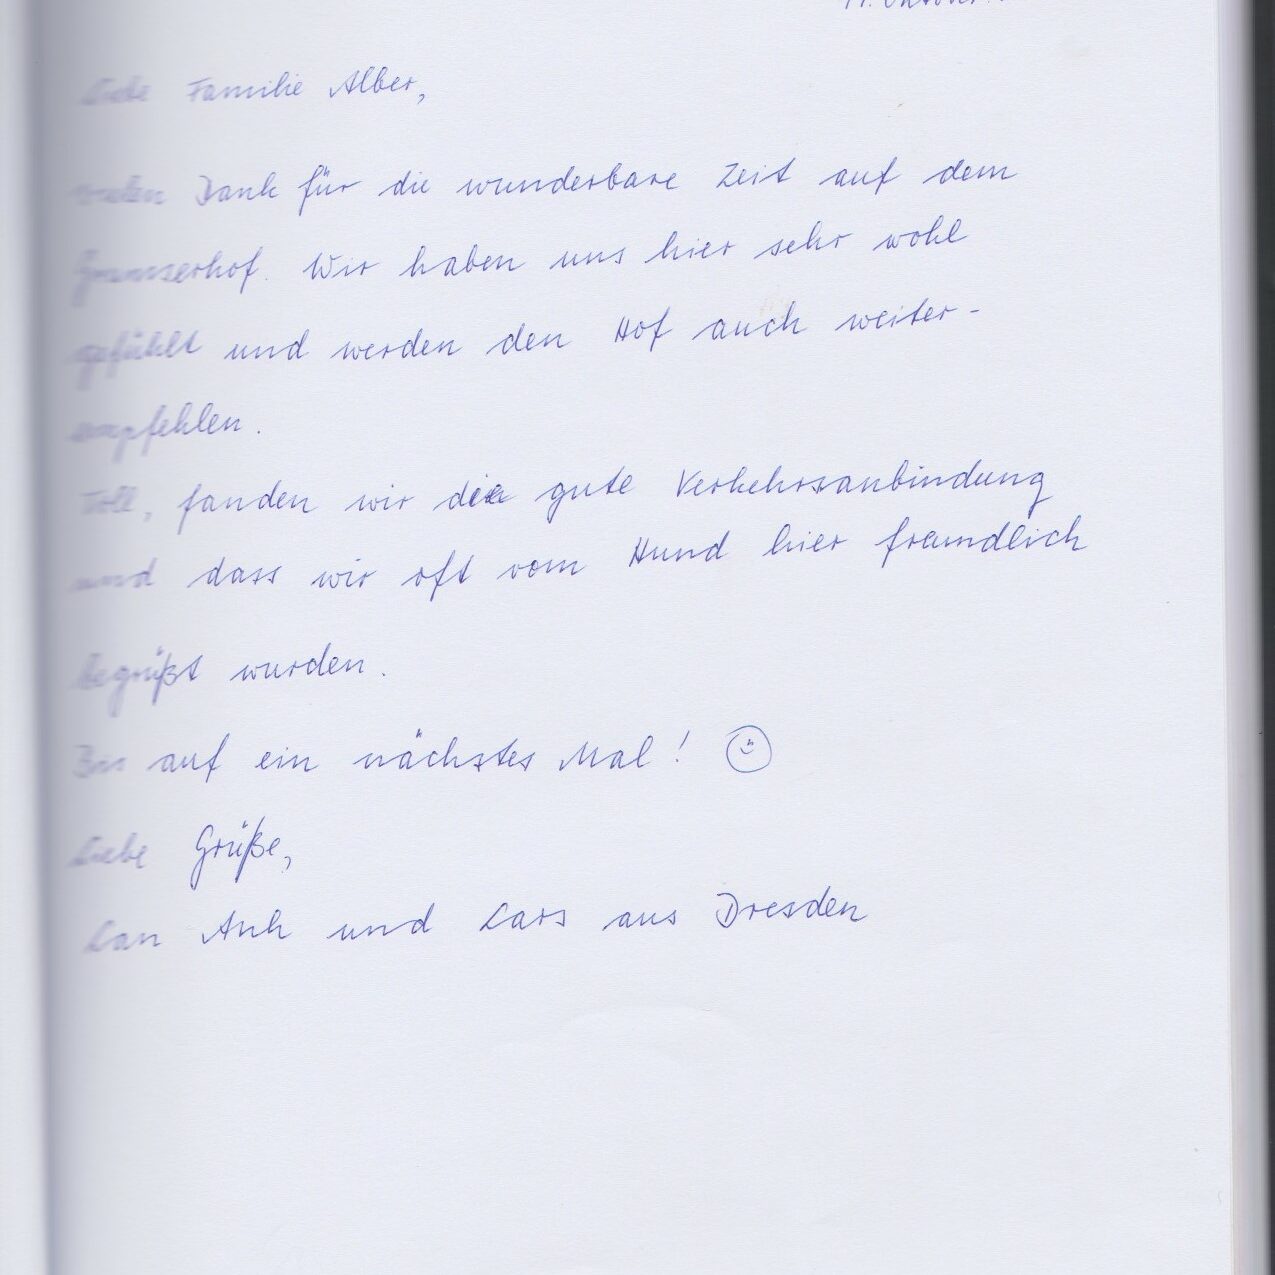 Liebe Familie Alber,
vielen Dank für die wunderbare Zeit auf dem
Wir haben uns hier sehr wohl
gefühlt und werden den Hof auch weiter-
empfehlen.
Toll, fanden wir die gute Verkehrsanbindung
und dass wir oft vom Hund hier freundlich
begrüßt wurden.
Bis auf ein nächstes Mal!
Liebe Grüße,
Lan Anh und Lars aus Dresden